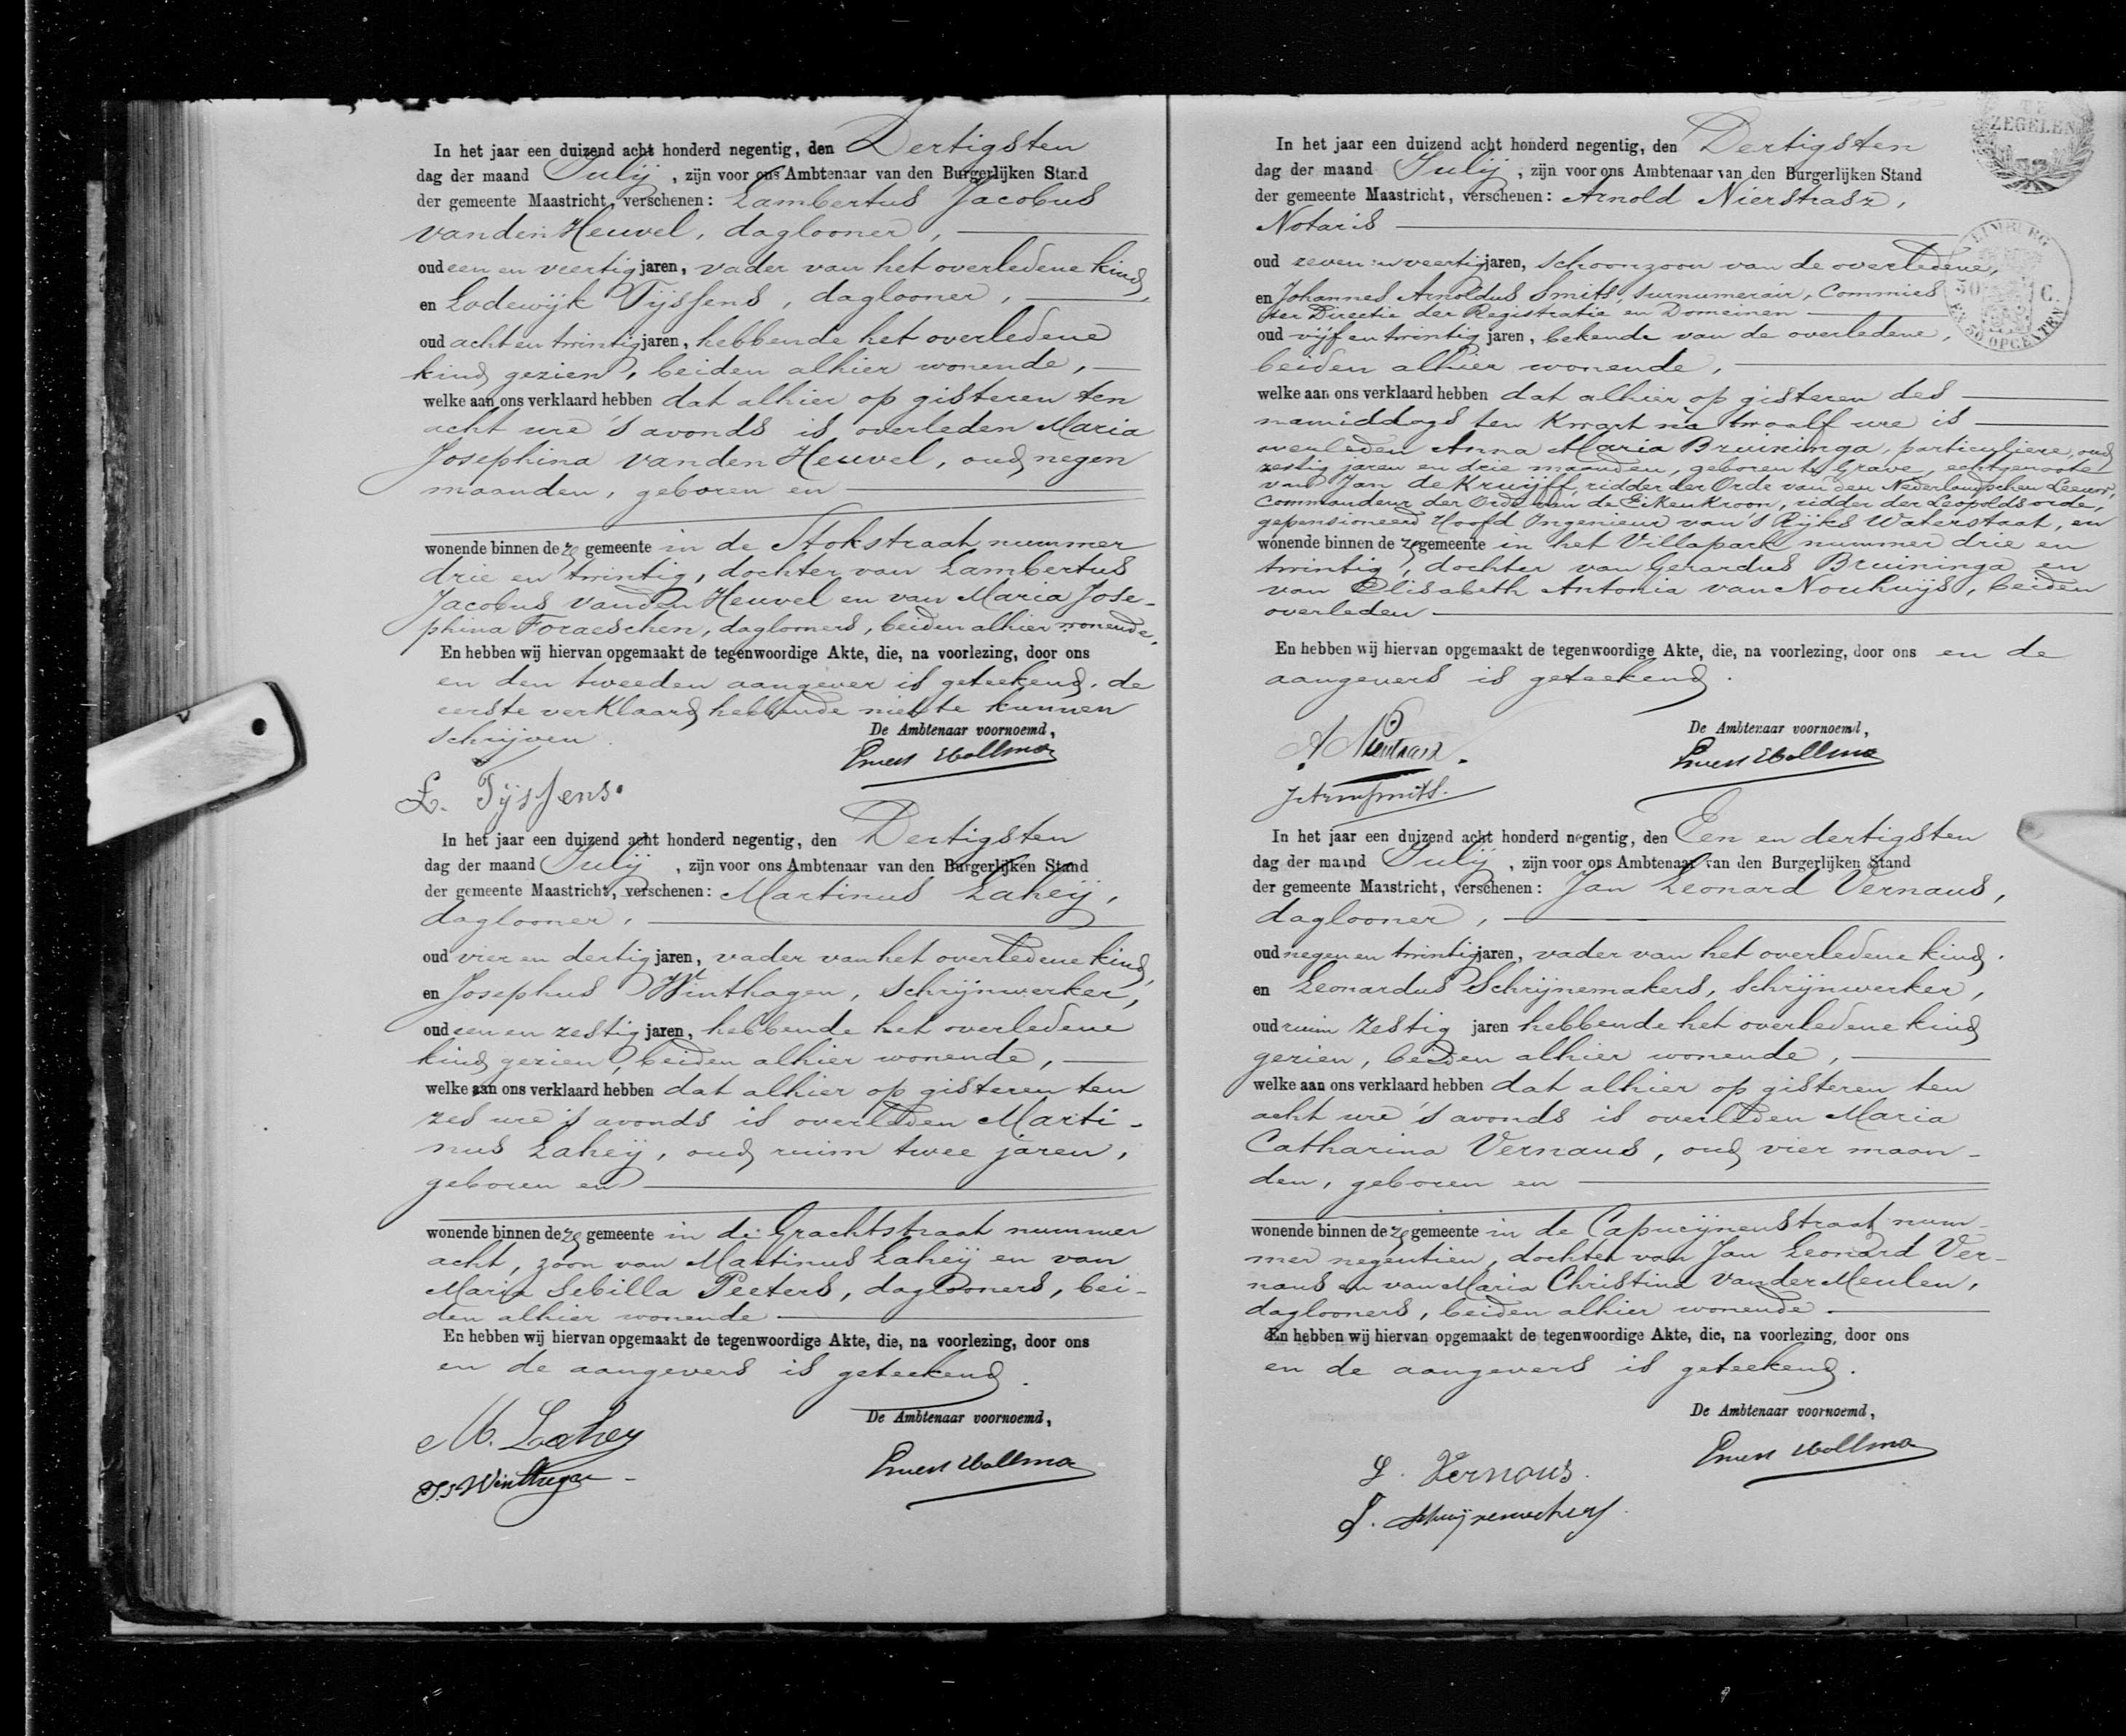 In het jaar een duizend acht honderd negentig, den Dertigsten
dag der maand Julij, zijn voor ons Ambtenaar van den Burgerlijken Stand
der gemeente Maastricht, verschenen: Lambertus Jacobus
vanden Heuvel, daglooner,
oud een en veertig jaren, vader van het overledene kind,
en Lodewijk Tijssens, daglooner,
oud acht en twintig jaren, hebbende het overledene
kind gezien, beiden alhier wonende,
welke aan ons verklaard hebben dat alhier op gisteren ten
acht ure 's avonds is overleden Maria
Josephina vanden Heuvel, oud negen
maanden, geboren en
wonende binnen deze gemeente in de Stokstraat nummer
drie en twintig, dochter van Lambertus
Jacobus vanden Heuvel en van Maria Jose-
phina Foraeschen, daglooners, beiden alhier wonende.
En hebben wij hiervan opgemaakt de tegenwoordige Akte, die, na voorlezing, door ons
en den tweeden aangever is geteekend, de
eerste verklaard hebbende niet te kunnen
schrijven.
De Ambtenaar voornoemd,
L. Tijssens.
In het jaar een duizend acht honderd negentig, den Dertigsten
dag der maand Julij, zijn voor ons Ambtenaar van den Burgerlijken Stand
der gemeente Maastricht, verschenen: Martinus Laheij,
daglooner,
oud vier en dertig jaren, vader van het overledene kind,
en Josephus Winthagen, schrijnwerker,
oud een en zestig jaren, hebbende het overledene
kind gezien, beiden alhier wonende,
welke aan ons verklaard hebben dat alhier op gisteren ten
zes ure 's avonds is overleden Marti-
nus Laheij, oud ruim twee jaren,
geboren en
wonende binnen deze gemeente in de Grachtstraat nummer
acht, zoon van Martinus Laheij en van
Maria Sebilla Peeters, daglooners, bei-
den alhier wonende
En hebben wij hiervan opgemaakt de tegenwoordige Akte, die, na voorlezing, door ons
en de aangevers is geteekend.
De Ambtenaar voornoemd,
M. Lahey
Js Winthagen
In het jaar een duizend acht honderd negentig, den Dertigsten
dag der maand Julij, zijn voor ons Ambtenaar van den Burgerlijken Stand
der gemeente Maastricht, verschenen: Arnold Nierstrasz,
Notaris
oud zeven en veertig jaren, schoonzoon van de overledene,
en Johannes Arnoldus Smits, surnumerair, Commies
ter Directie der Registratie en Domeinen
oud vijf en twintig jaren, bekende van de overledene,
beiden alhier wonende,
welke aan ons verklaard hebben dat alhier op gisteren des
namiddags ten kwart na twaalf ure is
overleden Anna Maria Bruininga, particuliere, oud
zestig jaren en drie maanden, geboren te Grave, echtgenoote
van Jan de Kruijff, ridder der Orde van den Nederlandschen Leeuw,
Commandeur der Orde van de Eikenkroon, ridder der Leopoldsorde,
gepensioneerd Hoofd Ingenieur van 's Rijks Waterstaat, en
wonende binnen deze gemeente in het Villapark nummer drie en
twintig, dochter van Gerardus Bruininga en
van Elisabeth Antonia van Nouhuijs, beiden
overleden
En hebben wij hiervan opgemaakt de tegenwoordige Akte, die, na voorlezing, door ons en de
aangevers is geteekend.
De Ambtenaar voornoemd,
ZEGELEN
LIMBURG
50 C.
EN 30 OPCENTEN
In het jaar een duizend acht honderd negentig, den Een en dertigsten
dag der maand Julij, zijn voor ons Ambtenaar van den Burgerlijken Stand
der gemeente Maastricht, verschenen: Jan Leonard Vernaus,
daglooner,
oud negen en twintig jaren, vader van het overledene kind,
en Leonardus Schrijnemakers, schrijnwerker,
oud ruim zestig jaren hebbende het overledene kind
gezien, beiden alhier wonende,
welke aan ons verklaard hebben dat alhier op gisteren ten
acht ure 's avonds is overleden Maria
Catharina Vernaus, oud vier maan-
den, geboren en
wonende binnen deze gemeente in de Capucijnenstraat num-
mer negentien, dochter van Jan Leonard Ver-
naus en van Maria Christina Vander Meulen,
daglooners, beiden alhier wonende.
En hebben wij hiervan opgemaakt de tegenwoordige Akte, die, na voorlezing, door ons
en de aangevers is geteekend.
De Ambtenaar voornoemd,
L. Vernous.